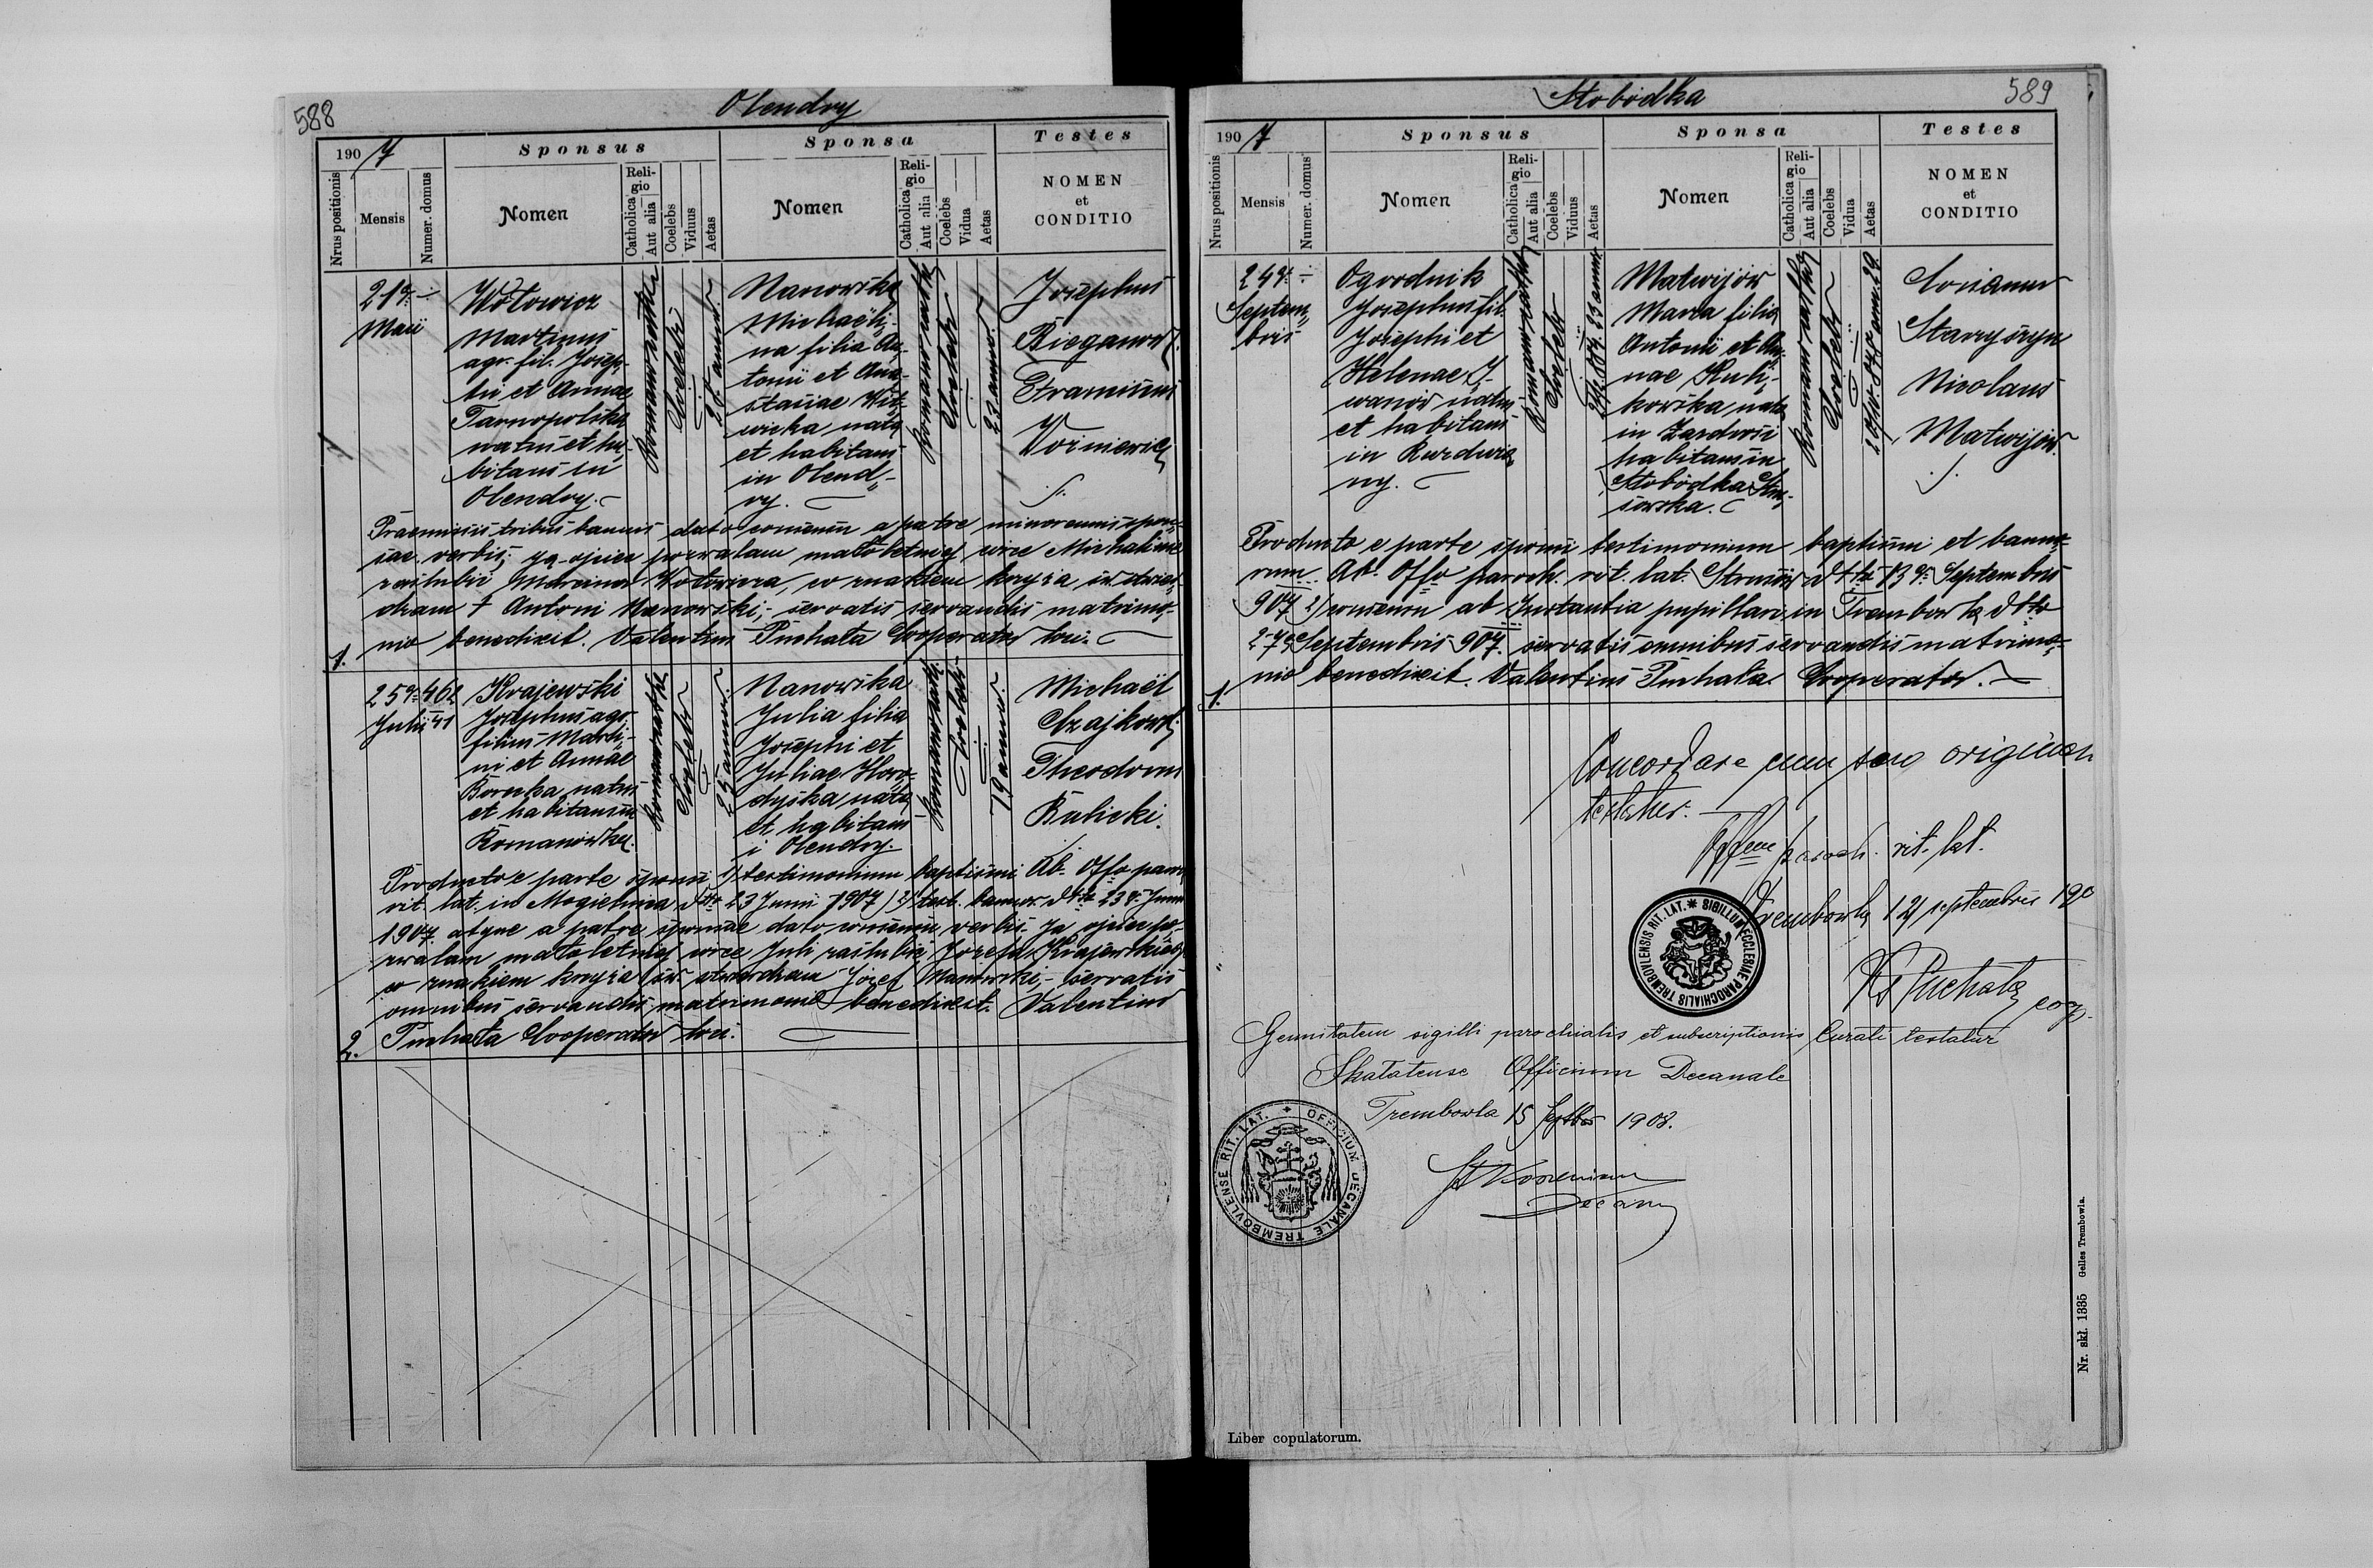 588
Olendry
1907
Sponsus
Sponsa
Testes
Nrus positionis
Mensis
Numer. domus
Nomen
Religio
Catholica
Aut alia
Coelebs
Viduus
Aetas
Nomen
Religio
Catholica
Aut alia
Coelebs
Vidua
Aetas
NOMEN
et
CONDITIO
21
Maii
Wołowicz
Martinus
agr. fil. Josep-
hi et Annae
Tarnopolska
natus et ha-
bitans in
Olendry.
Coelebs
Nanowska
Michaëli-
na filia An-
tonii et Ana-
stasiae Wit-
wicka nata
et habitans
in Olend-
ry.
Coelebs
23 annor.
Josephus
Bieganowski
Franciscus
Woźniewicz
Praemissis tribus bannis dato consensu a patre minorennis spon-
sae verbis: ja ojciec pozwalam małoletniej córce Michalinie
zaślubić Marcina Wołowicza, co znakiem krzyża św. stwier-
dzam + Antoni Nanowski; servatis servandis matrimo-
nio benedixit. Valentinus Puchała Cooperator loci.
1.
25 462
Julii 41
Krajewski
Josephus agr.
filius Marci-
ni et Annae
Borucka natus
et habitans in
Romanówka.
Coelebs
25 annor.
Nanowska
Julia filia
Josephi et
Juliae Horo-
dyska nata
et habitans
i Olendry.
19 annor.
Michaël
Czajkowski
Theodorus
Bulicki.
Producto e parte sponsi 1) testimonium baptismi Ab. Offo paroch.
rit. lat. in Mogielnica ddto 23 Junii 1907, 2) test. bannor. ddto 23 Junii
1907 atque a patre sponsae dato consensu verbis: Ja ojciec po-
zwalam małoletniej córce Juli zaślubić Józefa Krajewskiego
co znakiem krzyża św. stwierdzam Józef Nanowski, servatis
omnibus servandis matrimonio benedixit. Valentinus
2. Puchała Cooperator loci.
589
Słobódka
1907
Sponsus
Sponsa
Testes
Nrus positionis
Mensis
Numer. domus
Nomen
Religio
Catholica
Aut alia
Coelebs
Viduus
Aetas
Nomen
Religio
Catholica
Aut alia
Coelebs
Vidua
Aetas
NOMEN
et
CONDITIO
24
Septem-
bris
Ogrodnik
Josephus fil.
Josephi et
Helenae I-
wanów natus
et habitans
in Burdwia-
ny.
Coelebs
Matwijów
Maria filia
Antonii et An-
nae Kuli-
kowska nata
in Zazdrość
habitans in
Słobódka Stru-
sowska.
Coelebs
Staryszyn
Nicolaus
Matwijów.
Producto e parte sponsi testimonium baptismi et banno-
rum Ab. Offo paroch. rit. lat. Strusów ddto 13 Septembris
907 2) consensu ab Instantia pupillari in Trembowla ddto
27 Septembris 907. servatis omnibus servandis matrimo-
nio benedixit. Valentinus Puchała Cooperator.
1.
Concordare cum suo originali
testatur.
Offcum paroch. rit. lat.
Trembowla 12 septembris 190
Ks Puchała coop.
SIGILLUM ECCLESIAE PAROCHIALIS TREMBOVLENSIS RIT. LAT.
Genuitatem sigilli parochialis et subscriptionis Curati testatur
Skałatense Officium Decanale
Trembowla 15 Septbr 1908.
Decan
OFFICIUM DECANALE TREMBOVLENSE RIT. LAT.
Liber copulatorum.
Nr. skł. 1335 Gelles Trembowla.